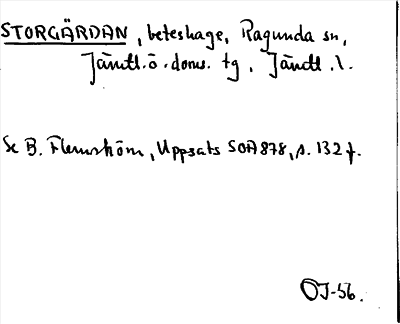 STORGÄRDAN, beteshage, Ragunda sn,
Jämtl. ö. doms. tg, Jämtl. l.
Se B. Flemström, Uppsats SOA 878, s. 132 f.
OJ-56.